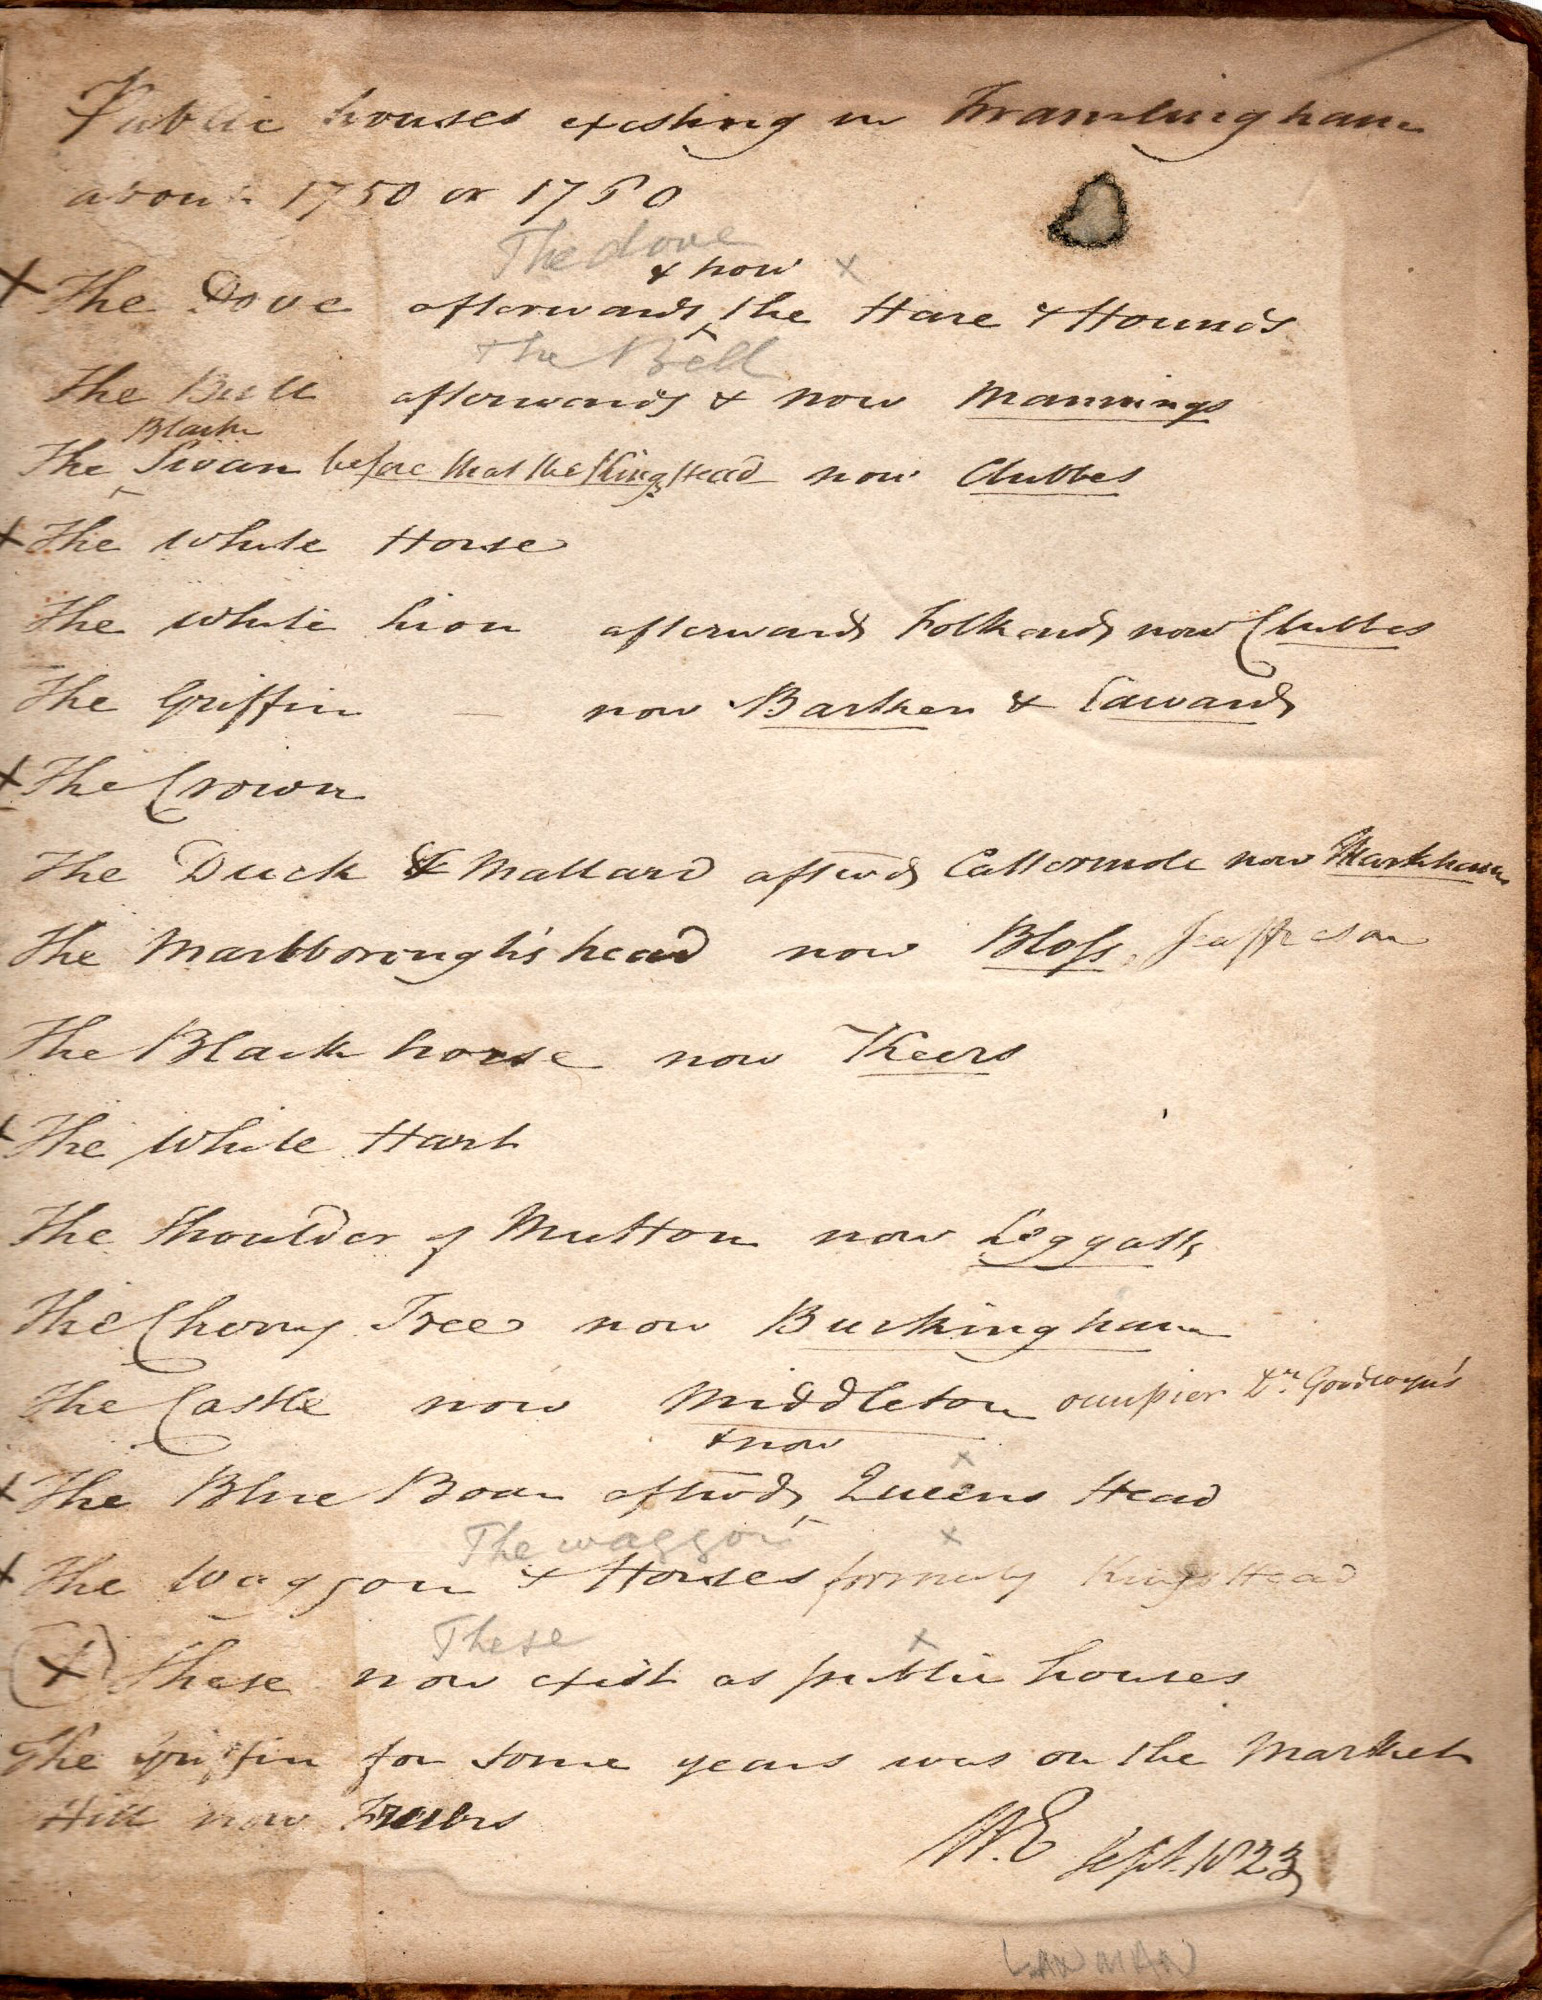 Public houses existing in Framlingham
about 1750 or 1760
The dove
& now x
X The Dove afterwards ‸ the Hare & Hounds
The Bell
The Bull afterwards & now Mannings
Black
The ‸ Swan before that the Kings Head now Clubbes
X The White Horse
The White Lion afterwards Folkards now Clubbes
The Griffin — now Barker & Edwards
X The Crown
The Duck & Mallard aftwds Cattermole now Markham
The Marlborough's head now Bloss, Jeaffreson
The Black horse now Keers
X The White Hart
The Shoulder of Mutton now Leggatts
The Cherry Tree now Buckingham
The Castle now Middleton occupier Dr. Goodwyn's
& now x
X The Blue Boar aftwds ‸ Queens Head
The waggon x
X The Waggon & Horses formerly Kings Head
These x
(X) these now exist as public houses
The Griffin for some years was on the Market
Hill now
W.E Sept. 1823